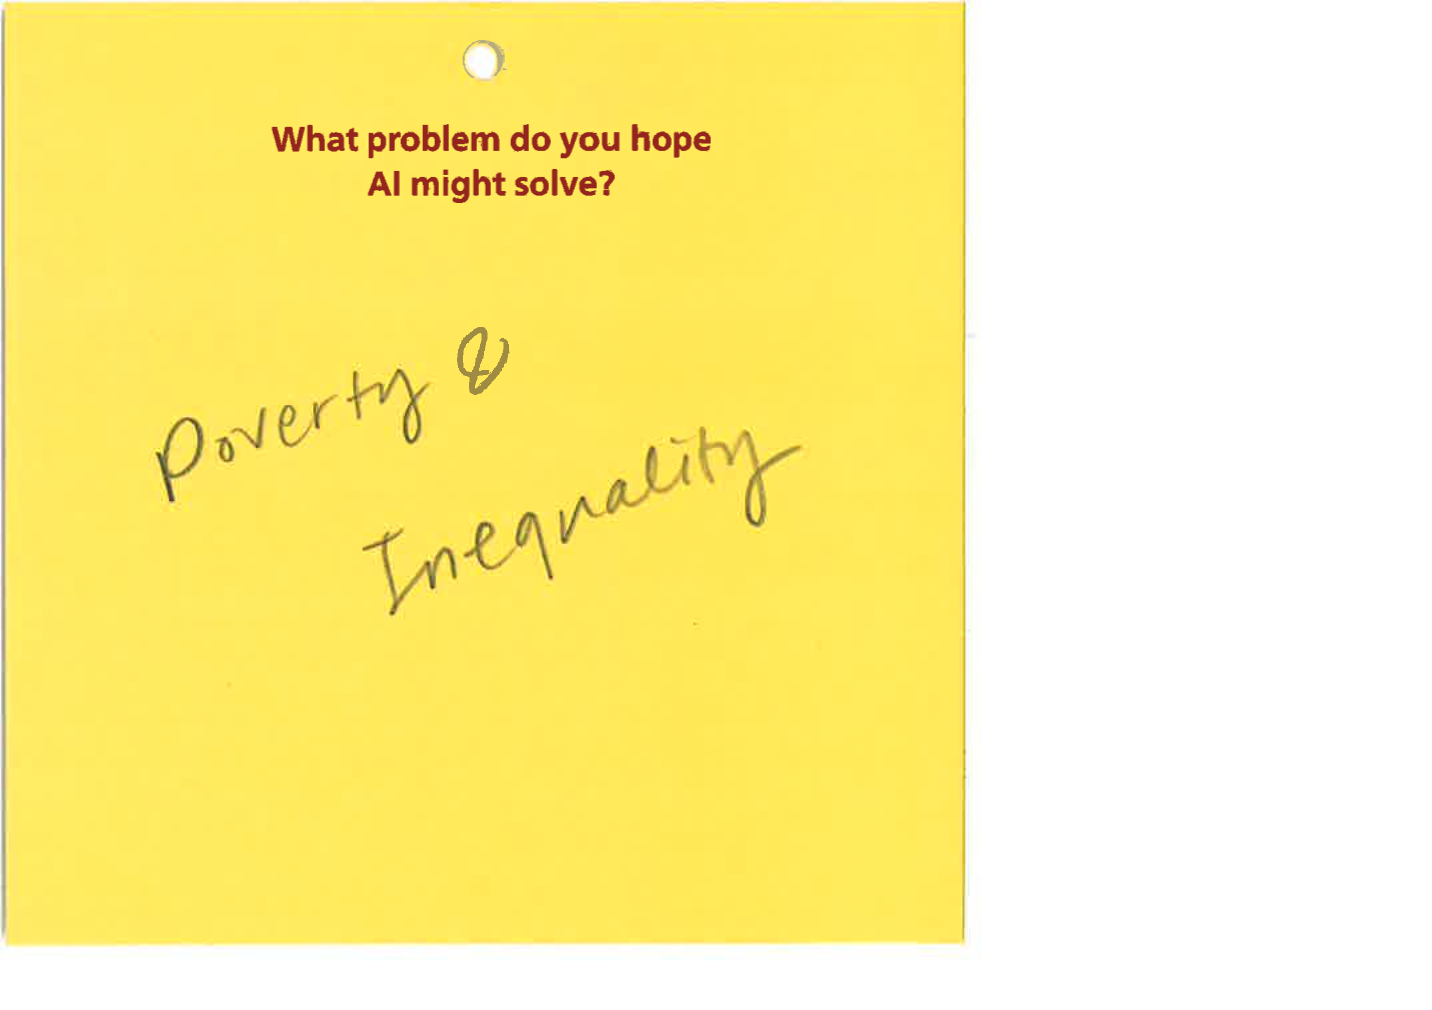 What problem do you hope
AI might solve?
Poverty &
Inequality